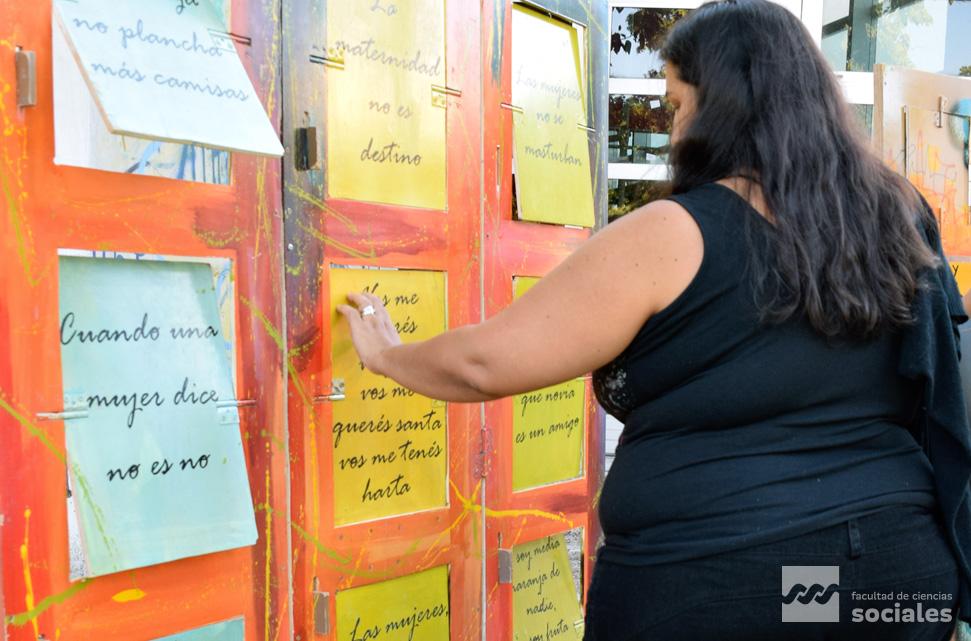 no plancha
más camisas
La
maternidad
no es
destino
Las mujeres
no se
masturban
Cuando una
mujer dice
no es no
Vos me
querés
vos me
querés santa
vos me tenés
harta
que novia
es un amigo
Las mujeres,
soy media
naranja de
nadie,
soy fruta
facultad de ciencias
sociales